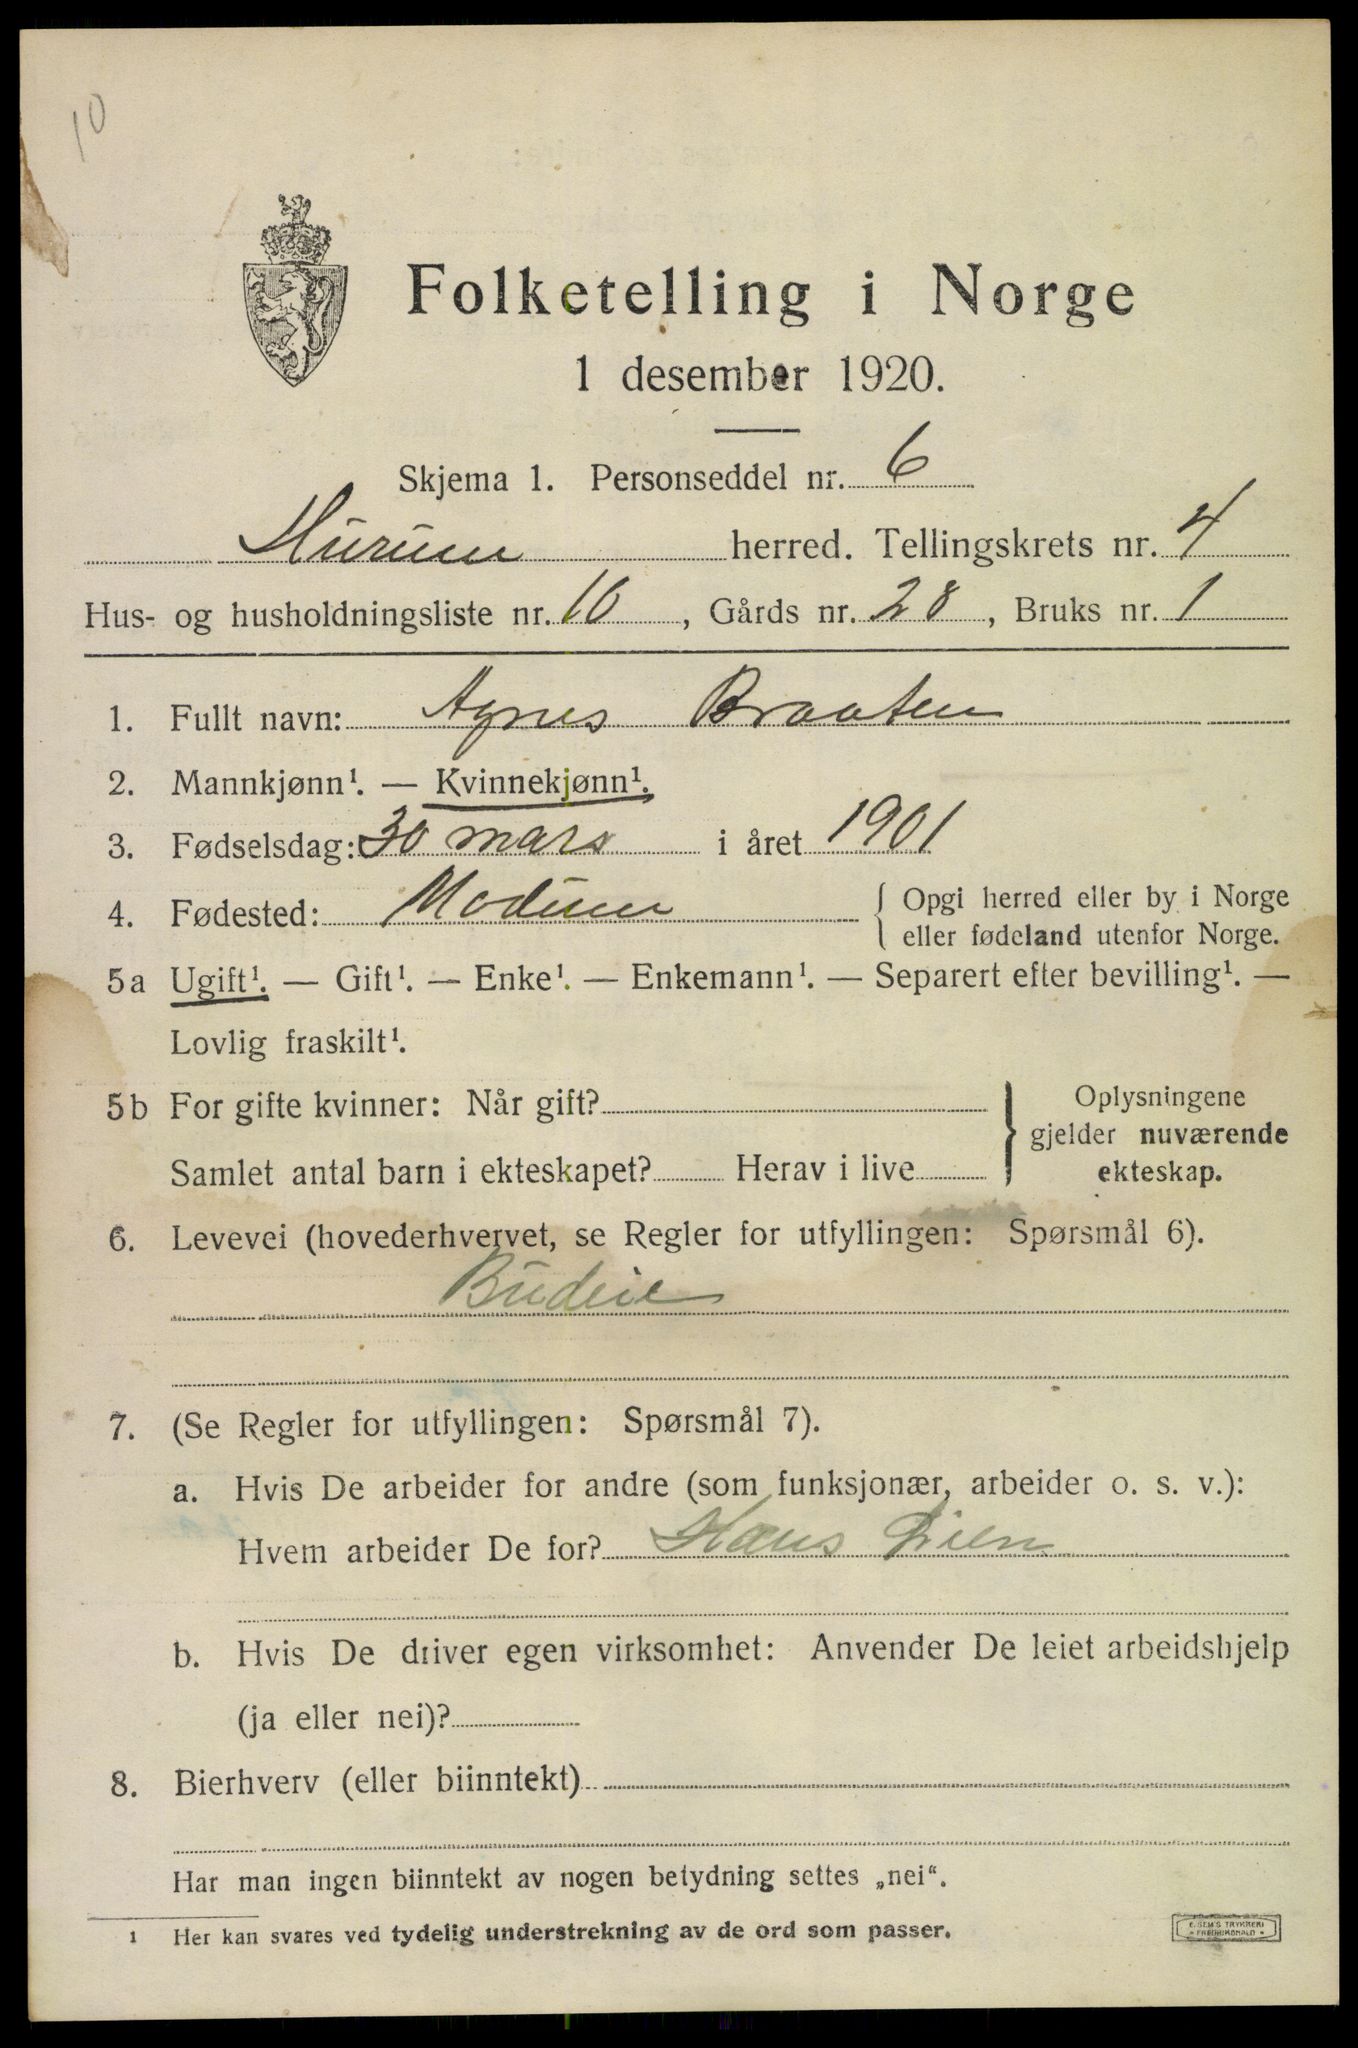 10
Folketelling i Norge
1 desember 1920.
Skjema 1. Personseddel nr. 6
Hurum herred. Tellingskrets nr. 4
Hus- og husholdningsliste nr. 10, Gårds nr. 28, Bruks nr. 1
1. Fullt navn: Agnes Braaten
2. Mannkjønn¹. — Kvinnekjønn¹.
3. Fødselsdag: 30 mars i året 1901
4. Fødested: Modum { Opgi herred eller by i Norge
eller fødeland utenfor Norge.
5a Ugift¹. — Gift¹. — Enke¹. — Enkemann¹. — Separert efter bevilling¹. —
Lovlig fraskilt¹.
5b For gifte kvinner: Når gift? } Oplysningene
gjelder nuværende
Samlet antal barn i ekteskapet? Herav i live ekteskap.
6. Levevei (hovederhvervet, se Regler for utfyllingen: Spørsmål 6).
Budeie
7. (Se Regler for utfyllingen: Spørsmål 7).
a. Hvis De arbeider for andre (som funksjonær, arbeider o. s. v.):
Hvem arbeider De for? Hans Lien
b. Hvis De driver egen virksomhet: Anvender De leiet arbeidshjelp
(ja eller nei)?
8. Bierhverv (eller biinntekt)
Har man ingen biinntekt av nogen betydning settes „nei“.
1 Her kan svares ved tydelig understrekning av de ord som passer.
E. SEM'S TRYKKERI
* FREDRIKSHALD *